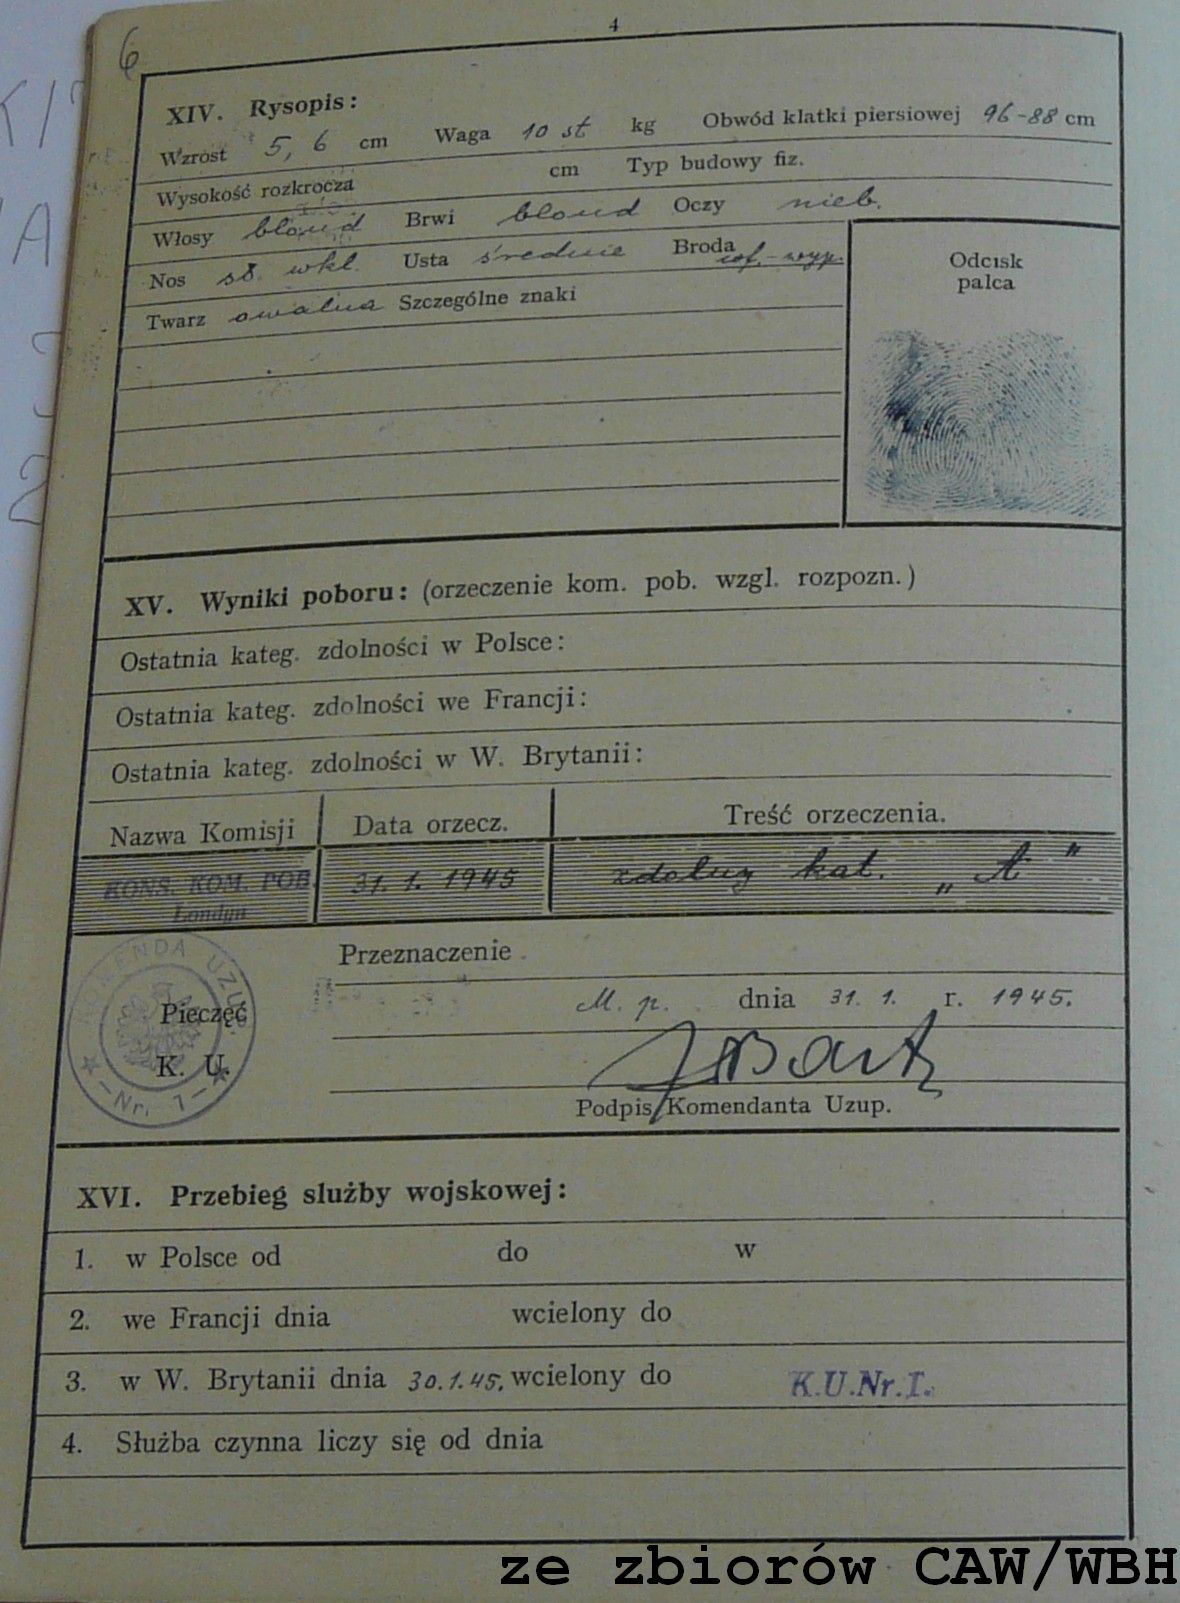 4
6
XIV. Rysopis:
Wzrost 5,6 cm Waga 10 st kg Obwód klatki piersiowej 96-88 cm
Wysokość rozkrocza cm Typ budowy fiz.
Włosy blond Brwi blond Oczy nieb.
Nos wkl. Usta średnie Broda
Twarz owalna Szczególne znaki
Odcisk
palca
XV. Wyniki poboru: (orzeczenie kom. pob. wzgl. rozpozn.)
Ostatnia kateg. zdolności w Polsce:
Ostatnia kateg. zdolności we Francji:
Ostatnia kateg. zdolności w W. Brytanii:
Nazwa Komisji Data orzecz. Treść orzeczenia.
KONS. KOM. POB. 31. 1. 1945 zdolny kat. „A"
Londyn
Przeznaczenie
KOMENDA UZUP.
Nr. 1
M. p. dnia 31. 1. r. 1945.
Pieczęć
K. U.
Podpis Komendanta Uzup.
XVI. Przebieg służby wojskowej:
1. w Polsce od do w
2. we Francji dnia wcielony do
3. w W. Brytanii dnia 30.1.45. wcielony do K.U.Nr.I.
4. Służba czynna liczy się od dnia
ze zbiorów CAW/WBH